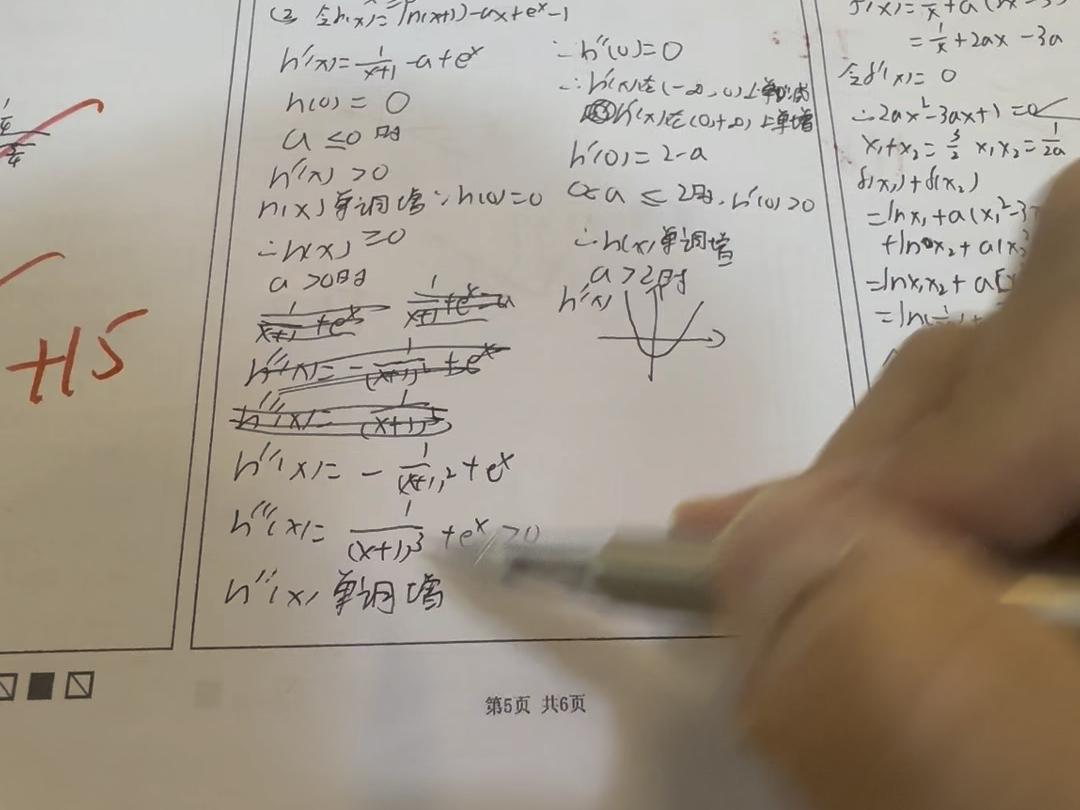 (2) 令h(x)=ln(x+1)-ax+eˣ-1
h'(x)=1/(x+1)-a+eˣ
h(0)=0
a≤0时
h'(x)>0
h(x)单调增∵h(0)=0
∴h(x)≥0
a>0时
h''(x)=-1/(x+1)²+eˣ
h'''(x)=1/(x+1)³+eˣ>0
h''(x)单调增
∵h''(0)=0
∴h'(x)在(-∞,0)上单减
h'(x)在(0,+∞)上单增
h'(0)=2-a
0<a≤2时,h'(0)>0
∴h(x)单调增
a>2时
h'(x)
=1/x+2ax-3a
令f'(x)=0
∴2ax²-3ax+1=0
x₁+x₂=3/2 x₁x₂=1/2a
f(x₁)+f(x₂)
=lnx₁+a(x₁²-3
+lnx₂+a(x₂
=lnx₁x₂+a[
=ln
+15
第5页 共6页